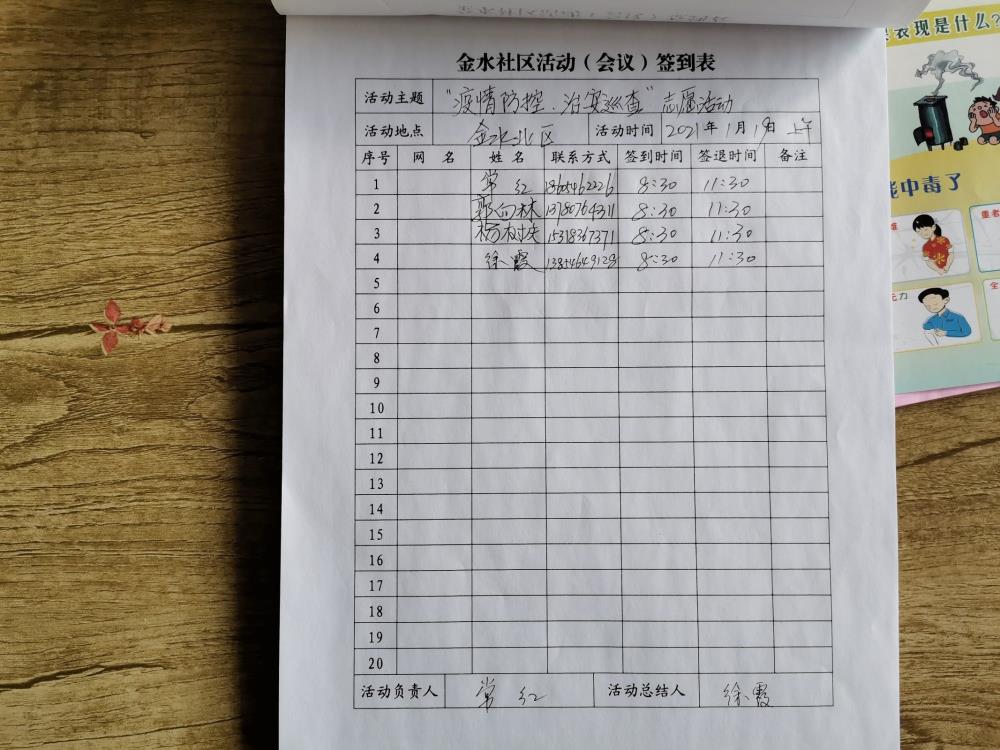 表现是什么?
金水社区活动（会议）签到表
活动主题 "疫情防控.治安巡查"志愿活动
活动地点 金水北区 活动时间 2021年1月19日 上午
序号 网 名 姓 名 联系方式 签到时间 签退时间 备注
1 常 红 18605462226 8:30 11:30
2 郭向林 13780764311 8:30 11:30
3 15318367371 8:30 11:30
4 徐霞 13854649128 8:30 11:30
5
6
7
8
9
10
11
12
13
14
15
16
17
18
19
20
活动负责人 常 红 活动总结人 徐霞
能中毒了
重者
无力
全